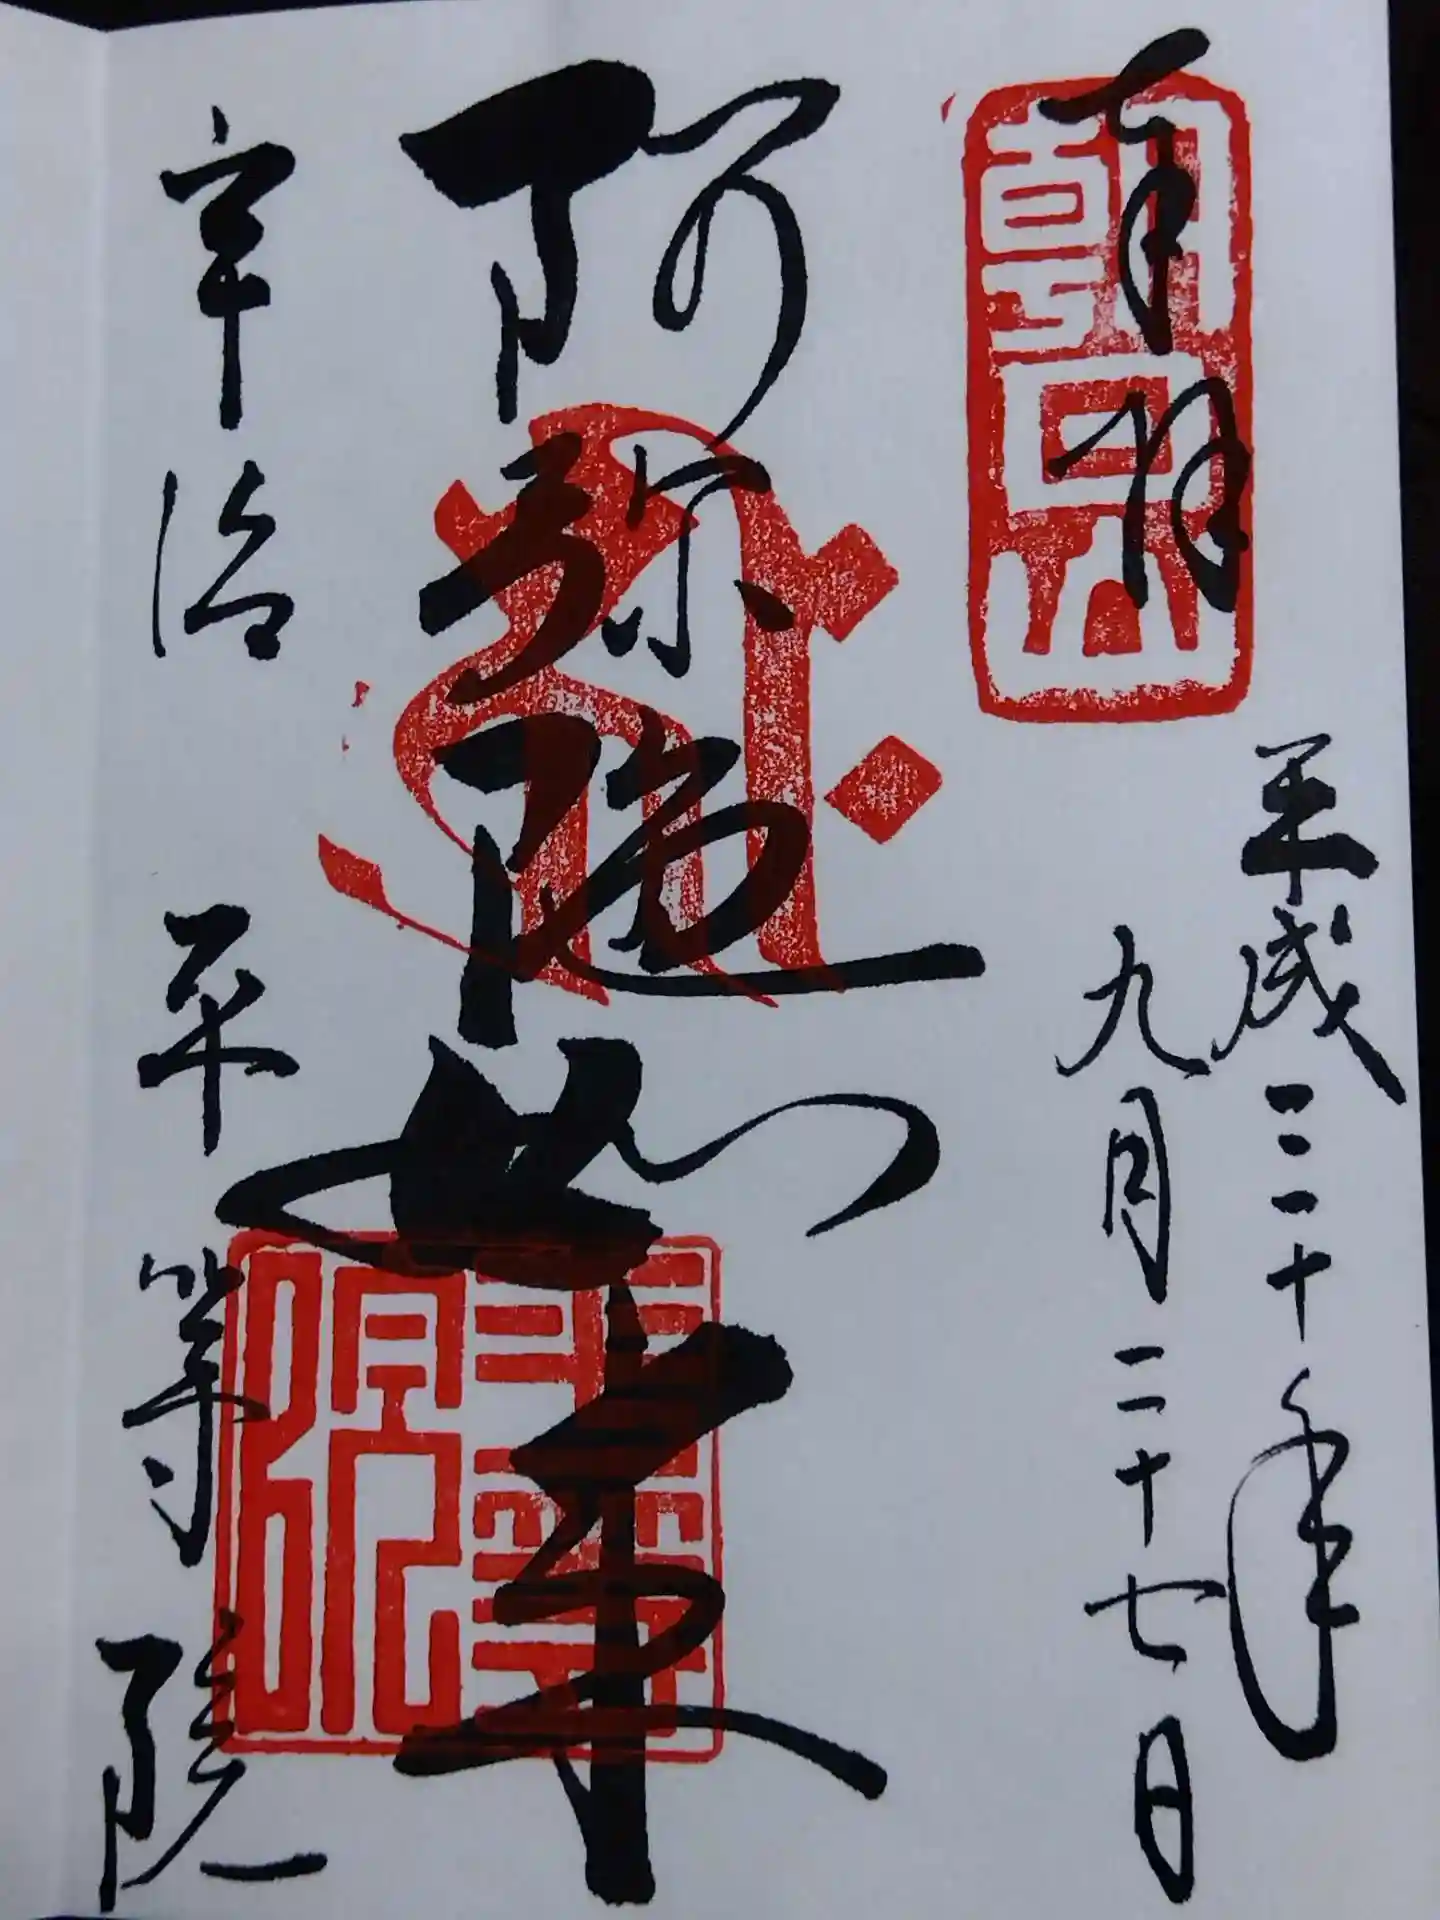 奉拝
朝日山
平成三十年
九月二十七日
阿弥陀如来
平等院印
宇治 平等院